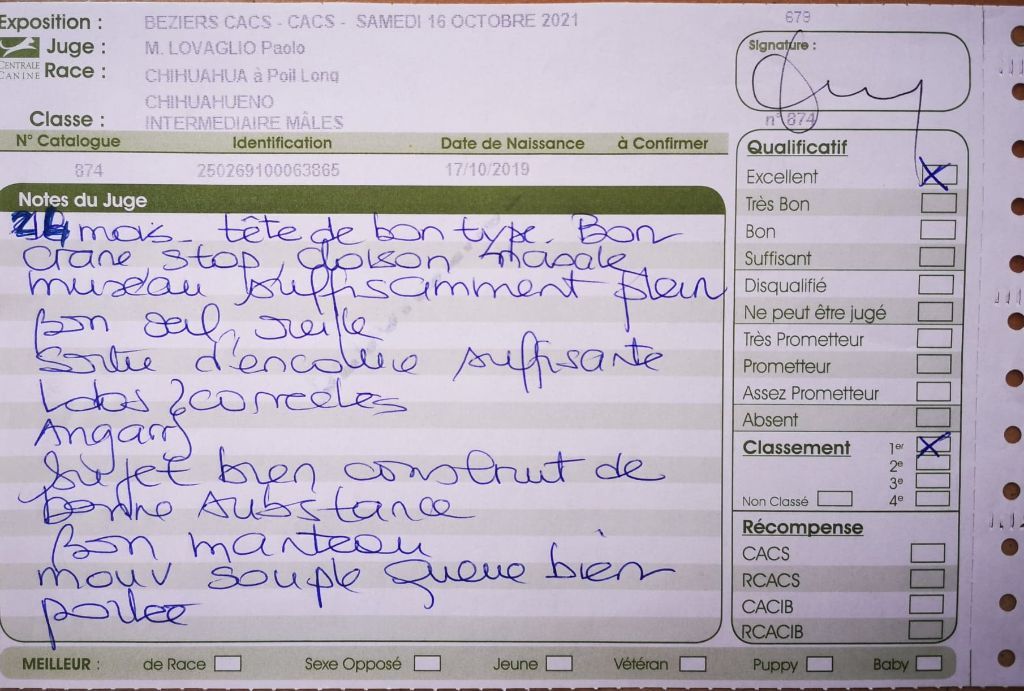 Exposition : BEZIERS CACS - CACS - SAMEDI 16 OCTOBRE 2021
679
Juge : M. LOVAGLIO Paolo
CENTRALE
CANINE
Race : CHIHUAHUA à Poil Long
CHIHUAHUENO
Classe : INTERMEDIAIRE MÂLES
Signature :
n° 874
N° Catalogue Identification Date de Naissance à Confirmer
874 250269100063865 17/10/2019
Notes du Juge
24 mois. tête de bon type. Bon
crane stop, cloison nasale
museau suffisamment plein
Bon oeil, oreille
Sortie d'encolure suffisante
correctes
Sujet bien construit de
bonne substance
Bon manteau
mouv souple queue bien
portee
Qualificatif
Excellent
Très Bon
Bon
Suffisant
Disqualifié
Ne peut être jugé
Très Prometteur
Prometteur
Assez Prometteur
Absent
Classement 1er
2e
3e
Non Classé 4e
Récompense
CACS
RCACS
CACIB
RCACIB
MEILLEUR : de Race Sexe Opposé Jeune Vétéran Puppy Baby